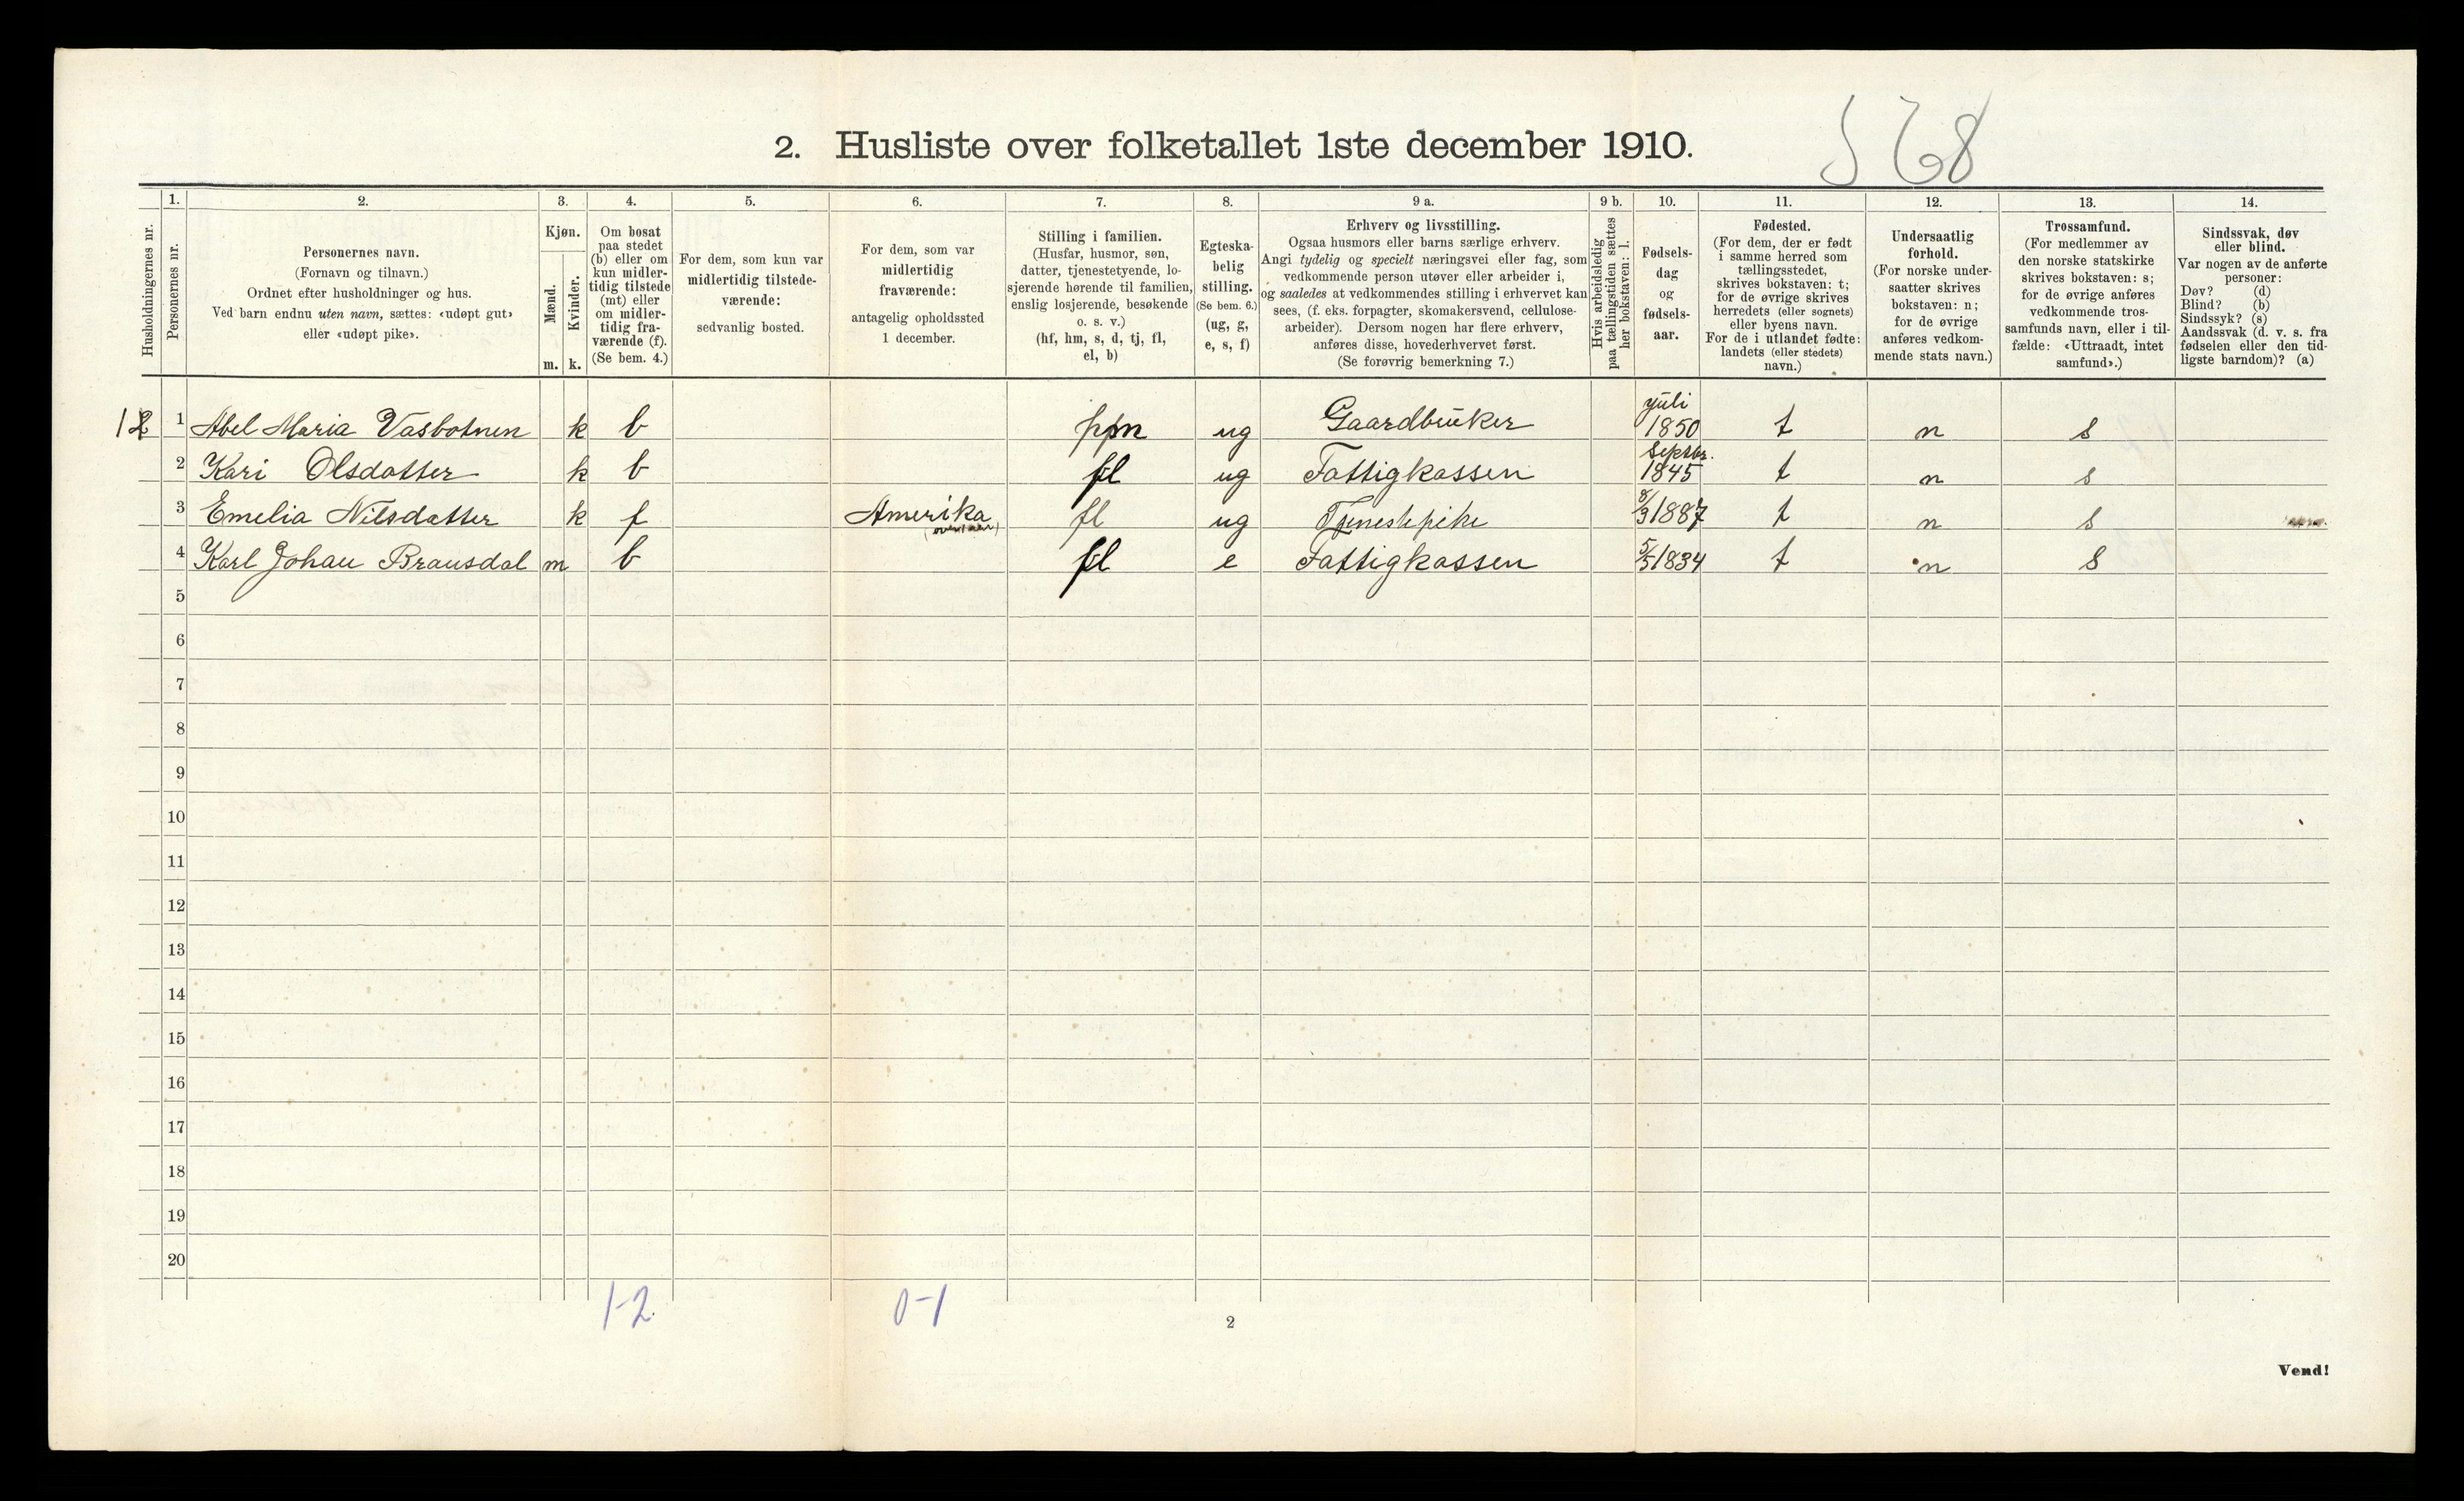 2. Husliste over folketallet 1ste december 1910.
1. 2. 3. 4. 5. 6. 7. 8. 9 a. 9 b. 10. 11. 12. 13. 14.
Husholdningernes nr.
Personernes nr.
Personernes navn.
(Fornavn og tilnavn.)
Ordnet efter husholdninger og hus.
Ved barn endnu uten navn, sættes: «udøpt gut»
eller «udøpt pike».
Kjøn.
Mænd.
Kvinder.
m. k.
Om bosat
paa stedet
(b) eller om
kun midler-
tidig tilstede
(mt) eller
om midler-
tidig fra-
værende (f).
(Se bem. 4.)
For dem, som kun var
midlertidig tilstede-
værende:
sedvanlig bosted.
For dem, som var
midlertidig
fraværende:
antagelig opholdssted
1 december.
Stilling i familien.
(Husfar, husmor, søn,
datter, tjenestetyende, lo-
sjerende hørende til familien,
enslig losjerende, besøkende
o. s. v.)
(hf, hm, s, d, tj, fl,
el, b)
Egteska-
belig
stilling.
(Se bem. 6.)
(ug, g,
e, s, f)
Erhverv og livsstilling.
Ogsaa husmors eller barns særlige erhverv.
Angi tydelig og specielt næringsvei eller fag, som
vedkommende person utøver eller arbeider i,
og saaledes at vedkommendes stilling i erhvervet kan
sees, (f. eks. forpagter, skomakersvend, cellulose-
arbeider). Dersom nogen har flere erhverv,
anføres disse, hovederhvervet først.
(Se forøvrig bemerkning 7.)
Hvis arbeidsledig
paa tællingstiden sættes
her bokstaven: l.
Fødsels-
dag
og
fødsels-
aar.
Fødested.
(For dem, der er født
i samme herred som
tællingsstedet,
skrives bokstaven: t;
for de øvrige skrives
herredets (eller sognets)
eller byens navn.
For de i utlandet fødte:
landets (eller stedets)
navn.)
Undersaatlig
forhold.
(For norske under-
saatter skrives
bokstaven: n;
for de øvrige
anføres vedkom-
mende stats navn.)
Trossamfund.
(For medlemmer av
den norske statskirke
skrives bokstaven: s;
for de øvrige anføres
vedkommende tros-
samfunds navn, eller i til-
fælde: «Uttraadt, intet
samfund».)
Sindssvak, døv
eller blind.
Var nogen av de anførte
personer:
Døv? (d)
Blind? (b)
Sindssyk? (s)
Aandssvak (d. v. s. fra
fødselen eller den tid-
ligste barndom)? (a)
1 Abel Maria Vasbotnen k b ug Gaardbruker juli 1850 t n s
2 Kari Olsdatter k b fl ug Fattigkassen Septbr. 1845 t n s
3 Emelia Nilsdatter k f Amerika fl ug Tjenestepike 8/3 1887 t n s
4 Karl Johan Bransdal m b fl e Fattigkassen 5/5 1834 t n s
5
6
7
8
9
10
11
12
13
14
15
16
17
18
19
20
1-2 0-1
2
Vend!